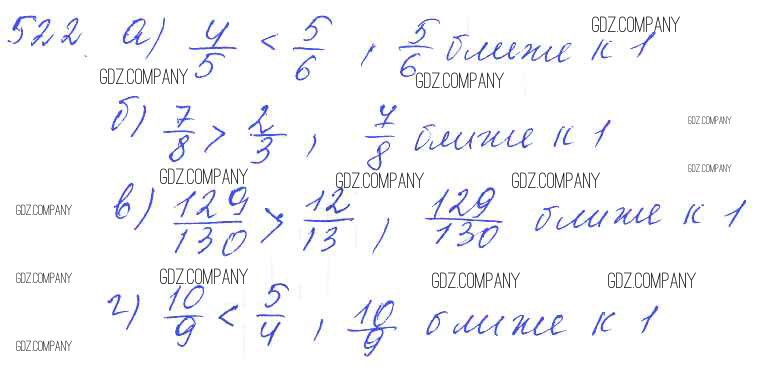 522. а) 4/5 < 5/6, 5/6 ближе к 1 GDZ.COMPANY
GDZ.COMPANY GDZ.COMPANY
б) 7/8 > 2/3, 7/8 ближе к 1 GDZ.COMPANY
GDZ.COMPANY GDZ.COMPANY GDZ.COMPANY GDZ.COMPANY
GDZ.COMPANY в) 129/130 > 12/13, 129/130 ближе к 1
GDZ.COMPANY GDZ.COMPANY GDZ.COMPANY GDZ.COMPANY
г) 10/9 < 5/4, 10/9 ближе к 1
GDZ.COMPANY